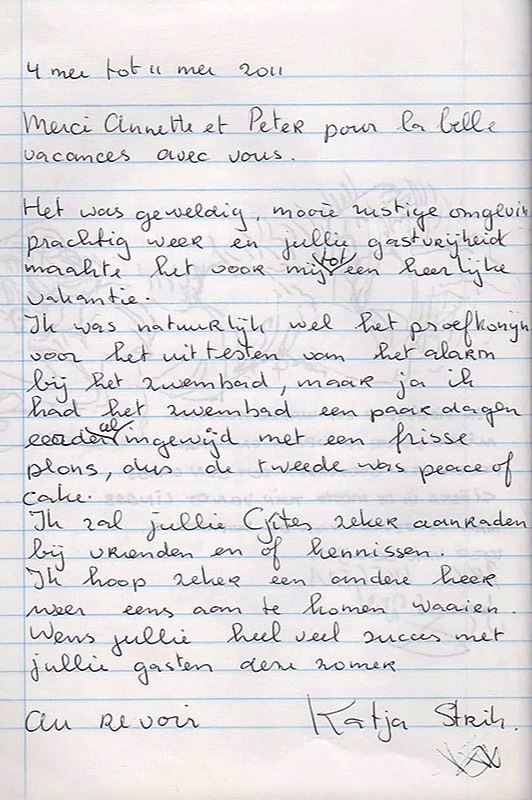 4 mei tot 11 mei 2011
Merci Annette et Peter pour la belle
vacances avec vous.
Het was geweldig, mooie rustige omgevin
prachtig weer en jullie gastvrijheid
maakte het voor mij tot een heerlijke
vakantie.
Ik was natuurlijk wel het proefkonijn
voor het uittesten van het alarm
bij het zwembad, maar ja ik
had het zwembad een paar dagen
eerder al ingewijd met een frisse
plons, dus de tweede was peace of
cake.
Ik zal jullie Gîtes zeker aanraden
bij vrienden en of kennissen.
Ik hoop zeker een andere keer
weer eens aan te komen waaien.
Wens jullie heel veel succes met
jullie gasten deze zomer
au revoir Katja Strik.